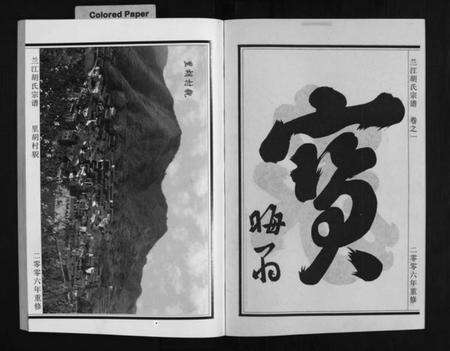 Colored Paper
兰江胡氏宗谱 卷之一
二零零六年重修
寳
晦翁
里胡村貌
兰江胡氏宗谱 里胡村貌
二零零六年重修